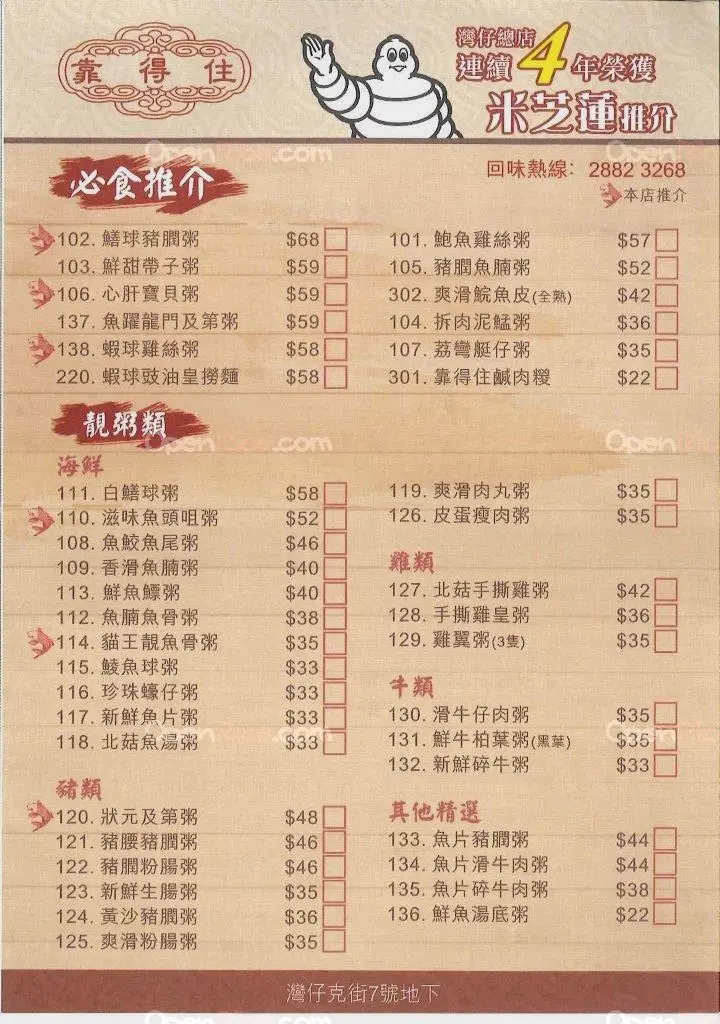 靠得住
灣仔總店
連續4年榮獲
米芝蓮推介
必食推介
回味熱線: 2882 3268
本店推介
102. 鱔球豬膶粥 $68
103. 鮮甜帶子粥 $59
106. 心肝寶貝粥 $59
137. 魚躍龍門及第粥 $59
138. 蝦球雞絲粥 $58
220. 蝦球豉油皇撈麵 $58
101. 鮑魚雞絲粥 $57
105. 豬膶魚腩粥 $52
302. 爽滑鯇魚皮(全熟) $42
104. 拆肉泥鯭粥 $36
107. 荔彎艇仔粥 $35
301. 靠得住鹹肉糉 $22
靚粥類
海鮮
111. 白鱔球粥 $58
110. 滋味魚頭咀粥 $52
108. 魚鮫魚尾粥 $46
109. 香滑魚腩粥 $40
113. 鮮魚鰾粥 $40
112. 魚腩魚骨粥 $38
114. 貓王靚魚骨粥 $35
115. 鯪魚球粥 $33
116. 珍珠蠔仔粥 $33
117. 新鮮魚片粥 $33
118. 北菇魚湯粥 $33
豬類
120. 狀元及第粥 $48
121. 豬腰豬膶粥 $46
122. 豬膶粉腸粥 $46
123. 新鮮生腸粥 $35
124. 黃沙豬膶粥 $36
125. 爽滑粉腸粥 $35
119. 爽滑肉丸粥 $35
126. 皮蛋瘦肉粥 $35
雞類
127. 北菇手撕雞粥 $42
128. 手撕雞皇粥 $36
129. 雞翼粥(3隻) $35
牛類
130. 滑牛仔肉粥 $35
131. 鮮牛柏葉粥(黑葉) $35
132. 新鮮碎牛粥 $33
其他精選
133. 魚片豬膶粥 $44
134. 魚片滑牛肉粥 $44
135. 魚片碎牛肉粥 $38
136. 鮮魚湯底粥 $22
灣仔克街7號地下